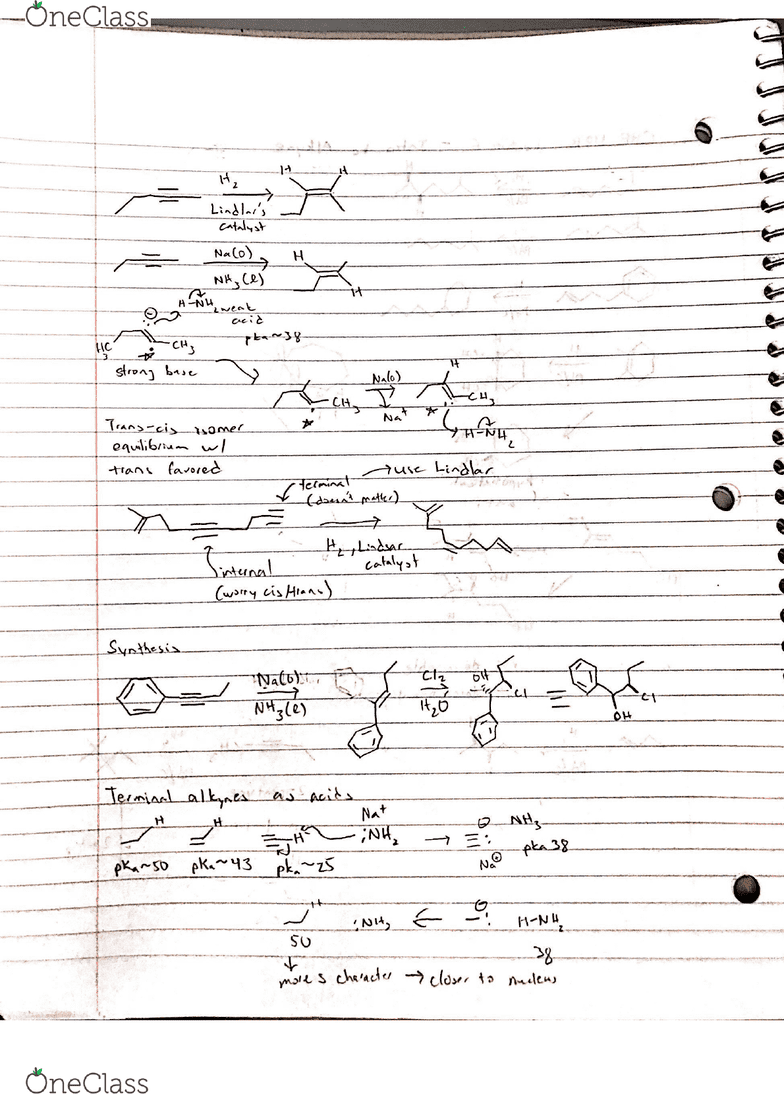 OneClass
H₂
H H
Lindlar's
catalyst
Na(0)
NH₃(l)
H
H
⊖
H-NH₂ weak
acid
pka~38
H₃C
CH₃
strong base
CH₃
Na(0)
Na⁺
H
CH₃
H-NH₂
Trans-cis isomer
equilibrium w/
trans favored
terminal → use Lindlar
(doesn't matter)
H₂, Lindlar
catalyst
internal
(worry cis/trans)
Synthesis
Na(0)
NH₃(l)
Cl₂
H₂O
OH
Cl
Cl
OH
Terminal alkynes as acids
H H H Na⁺ :NH₂ → ⊖ : NH₃
Na⊕
pKa~50 pKa~43 pKa~25 pka 38
H :NH₂ ← ⊖ : H-NH₂
50 38
more s character → closer to nucleus
OneClass